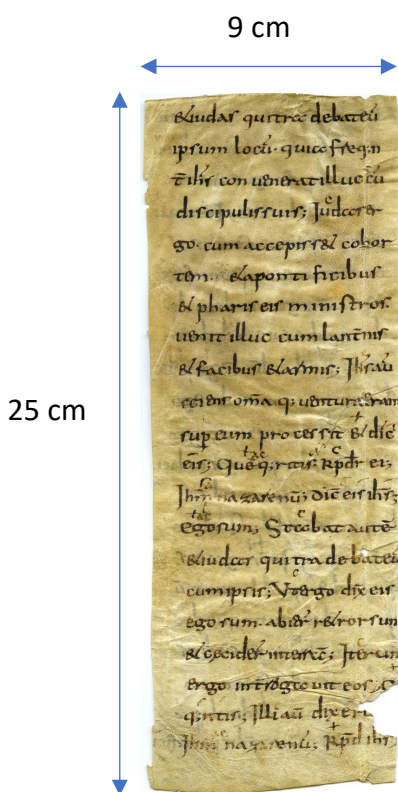 9 cm
25 cm
& iudas qui tradebat eū
ipsum locū· quia freq̄n
t̄ ih̄s conuenerat illuc cū
discipulis suis; Iudas er
go· cum accepiss& cohor
tem· & a pontificibus
& phariseis ministros·
uenit illuc cum lant̄nis
& facibus & armis; Ih̄s aū
sciens om̄a q; uentura erant
sup̱ eum processit & dic̄
eis; Que q;ritis; Rp̄dr̄ ei;
Ih̄m nazarenū; dic̄ eis ih̄s;
ego sum; Stabat autē
& iudas qui tradebat eū
cum ipsis; Vt ergo dix̄ eis
ego sum· abier̄ r&rorsum
& cecider̄ in terrā; Iterum
ergo int̄rogauit eos;
q;ritis; Illi aū dixer̄
Ih̄m nazarenū; Rp̄d ih̄s;